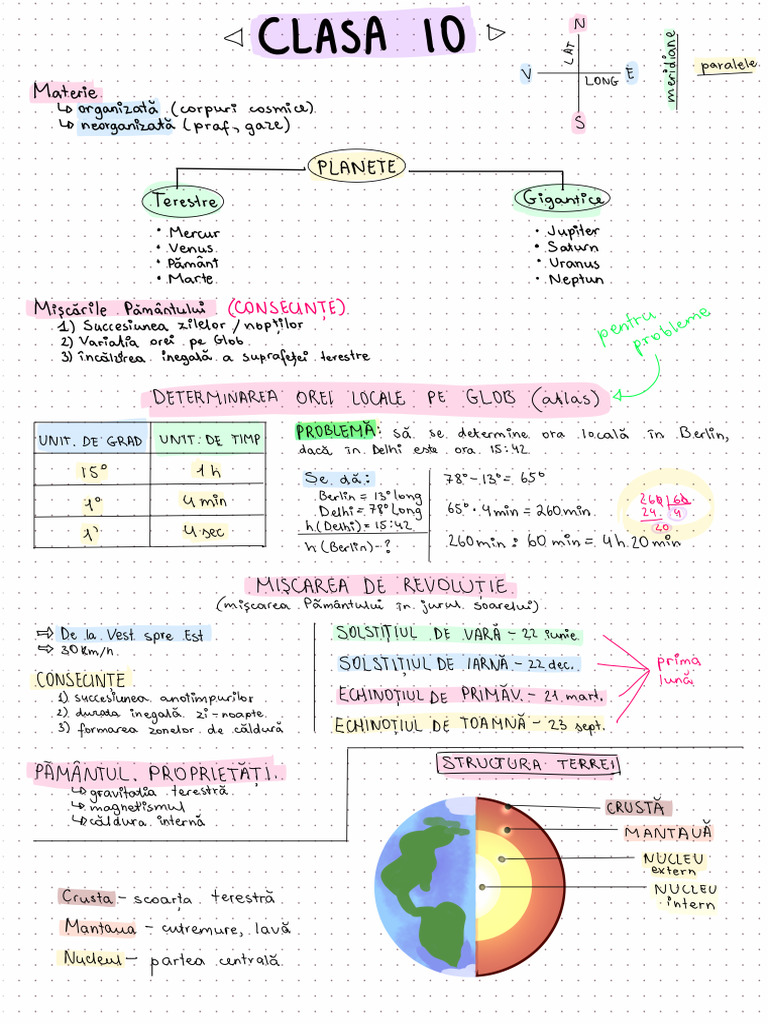 CLASA 10
N
LAT
V
E
LONG
S
meridiane
paralele
Materie
↳ organizată (corpuri cosmice)
↳ neorganizată (praf, gaze)
PLANETE
Terestre
Gigantice
• Mercur
• Venus
• Pământ
• Marte
• Jupiter
• Saturn
• Uranus
• Neptun
Mișcările Pământului (CONSECINȚE)
1) Succesiunea zilelor / nopților
2) Variatia orei pe Glob
3) încălzirea inegală a suprafeței terestre
pentru
probleme
DETERMINAREA OREI LOCALE PE GLOB (atlas)
UNIT. DE GRAD UNIT. DE TIMP
15° 1h
1° 4 min
1' 4 sec
PROBLEMĂ: să se determine ora locală în Berlin,
dacă în Delhi este ora 15:42
Se dă:
Berlin = 13° long
Delhi = 78° Long
h (Delhi) = 15:42
h (Berlin) - ?
78° - 13° = 65°
65° · 4 min = 260 min
260 min : 60 min = 4 h. 20 min
260 60
24 4
20
MIȘCAREA DE REVOLUȚIE
(mișcarea Pământului în jurul soarelui)
⇒ De la Vest spre Est
⇒ 30 km/h
CONSECINȚE
1) succesiunea anotimpurilor
2) durata inegală zi-noapte
3) formarea zonelor de căldură
SOLSTIȚIUL DE VARĂ - 22 iunie
SOLSTIȚIUL DE IARNĂ - 22 dec.
ECHINOȚIUL DE PRIMĂV. - 21 mart.
ECHINOȚIUL DE TOAMNĂ - 23 sept.
prima
lună
PĂMÂNTUL. PROPRIETĂȚI.
↳ gravitatia terestră
↳ magnetismul
↳ căldura internă
STRUCTURA TERREI
CRUSTĂ
MANTAUĂ
NUCLEU
extern
NUCLEU
intern
Crusta - scoarța terestră
Mantaua - cutremure, lavă
Nucleul - partea centrală